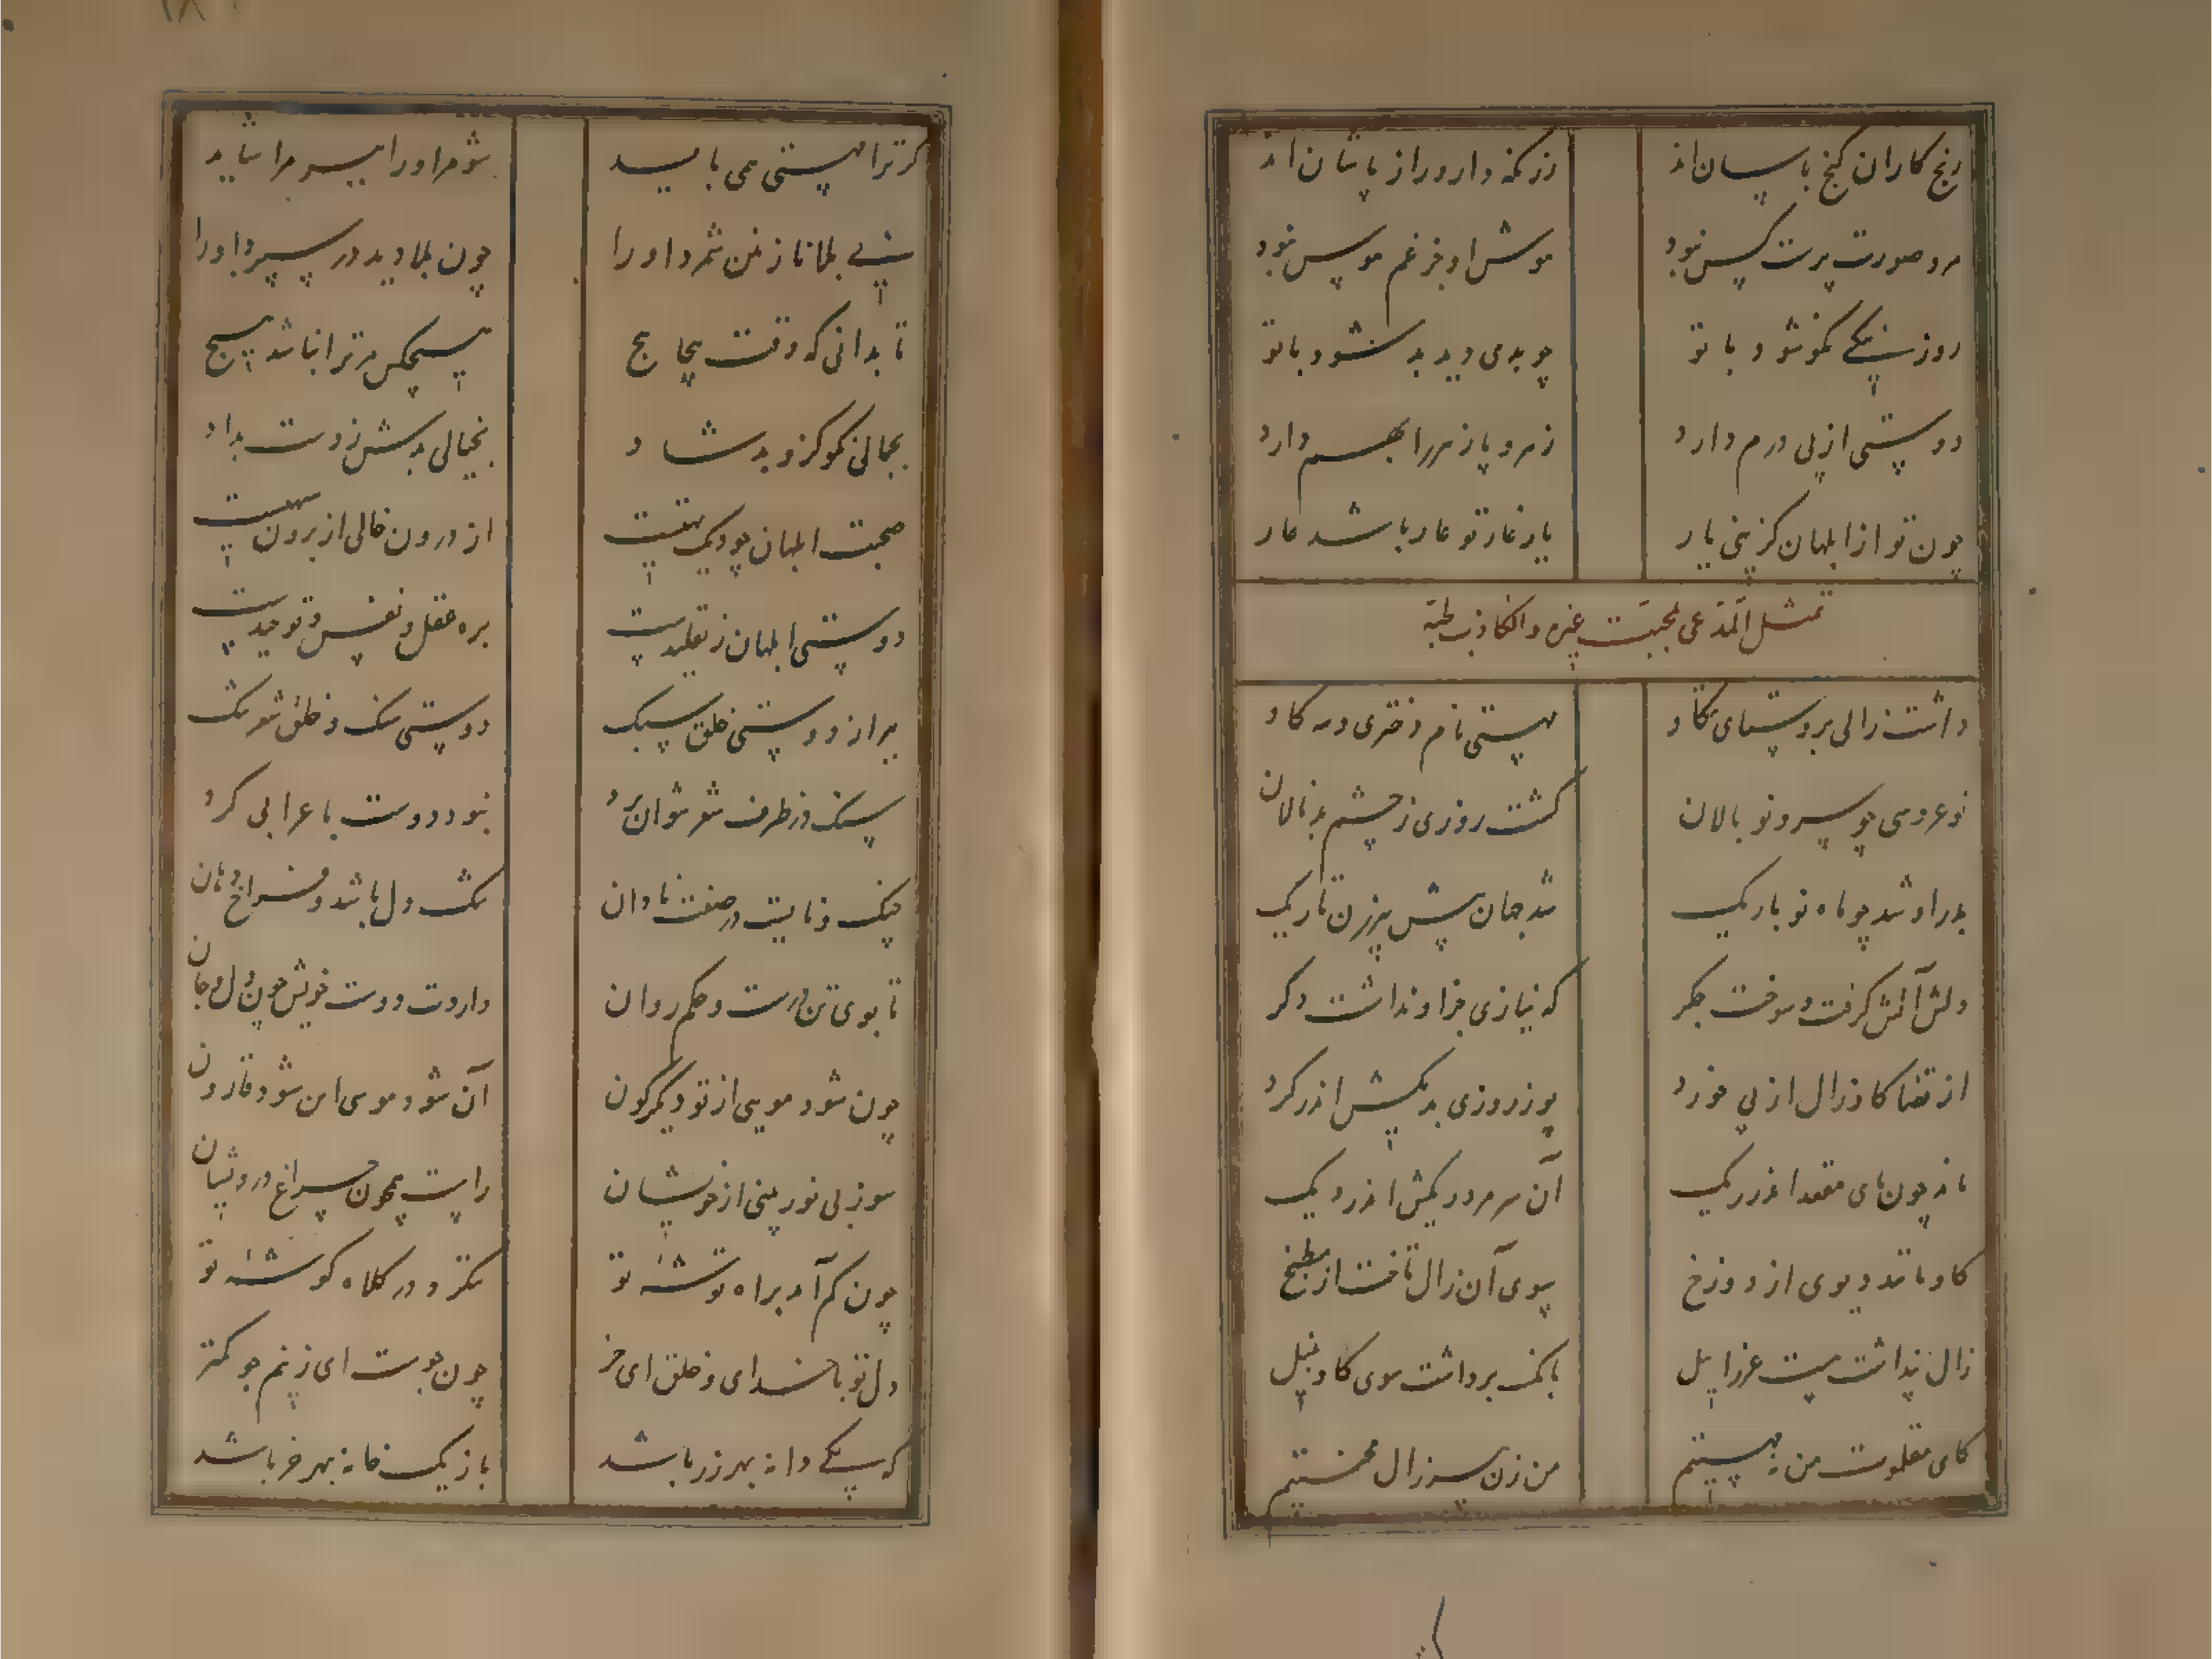 رنج کاران گنج پاسبان‌اند
زر نکه دارو راز پاشان اند
مرد صورت پرست کس نبود
موسش او جز غم موس نبود
روز نیکی نکو شود با تو
چو بدی دید بد شود با تو
دوستی از پی درم دارد
زمره پازمررا بهم دارد
چون تو از ابلهان گزینی یار
یار غار تو عار باشد عار
تمثل المدعی لمحبت غیره والکاذب لمحبه
داشت زالی بروستای تکاو
مهستی نام دختری و سه کاو
نو عروسی چو سرو نو بالان
گشت روزی ز چشم بد نالان
بدر او شد چو ماه نو باریک
شد جهان پیش پیرزن تاریک
دلش آتش گرفت و سوخت جگر
که نیازی جز او نداشت دگر
از قضا کاو زال از پی خورد
پوز روزی بدیگش اندر کرد
ماند چون پای مقعد اندر ریگ
آن سر مرده ریگش اندر دیگ
کاو مانند دیوی از دوزخ
سوی آن زال تاخت از مطبخ
زال پنداشت هست عزرائیل
بانگ برداشت سوی کاو نبیل
کای مقلموت من نه مهستیم
من زن پیر زال محنتیم
گر ترا مهستی همی باید
شو مر او را ببر مرا شاید
بی بلا نازنین شمرد او را
چون بلا دید در سپرد او را
تا بدانی که وقت پیچا پیچ
هیچکس مر ترا نباشد هیچ
بجمالی نکو کزو بد شاد
بخیالی بدش ز دست بداد
صحبت ابلهان چو دیگ تهیست
از درون خالی از برون سیهست
دوستی ابلهان ز تقلیدست
بره عقل و نفس و توحیدست
ببر از دوستی خلق سبک
دوستی سنگ و خلق شعر تنک
سنگ در ظرف شعر نتوان برد
نبود دوست با عرابی کرد
چنگ و نایست در صفت نادان
تنگ دل باشد و فراخ دهان
تا بوی تن درست و حکم روان
داردت دوست خویش چون دل و جان
چون شود مویی از تو دیگرگون
آن شود موسی این شود قارون
سوز بی نور بینی از خویشان
راست همچون چراغ درویشان
چون کم آمد براه توشهٔ تو
ننگرد در کلاه گوشهٔ تو
دل تو با خدای و خلق ای خر
چون جوست ای ز نیم جو کمتر
که سکی دانه بهر زر باشد
باز یک خانه بهر خر باشد